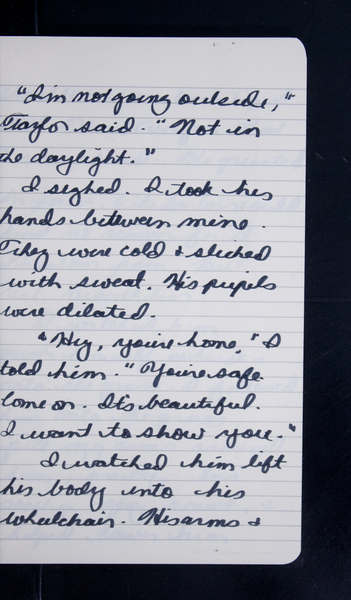 "I'm not going outside,"
Taylor said. "Not in
the daylight."
I sighed. I took his
hands between mine.
They were cold & slicked
with sweat. His pupils
were dilated.
"Hey, you're home," I
told him. "You're safe.
Come on. It's beautiful.
I want to show you."
I watched him lift
his body into his
wheelchair. His arms &